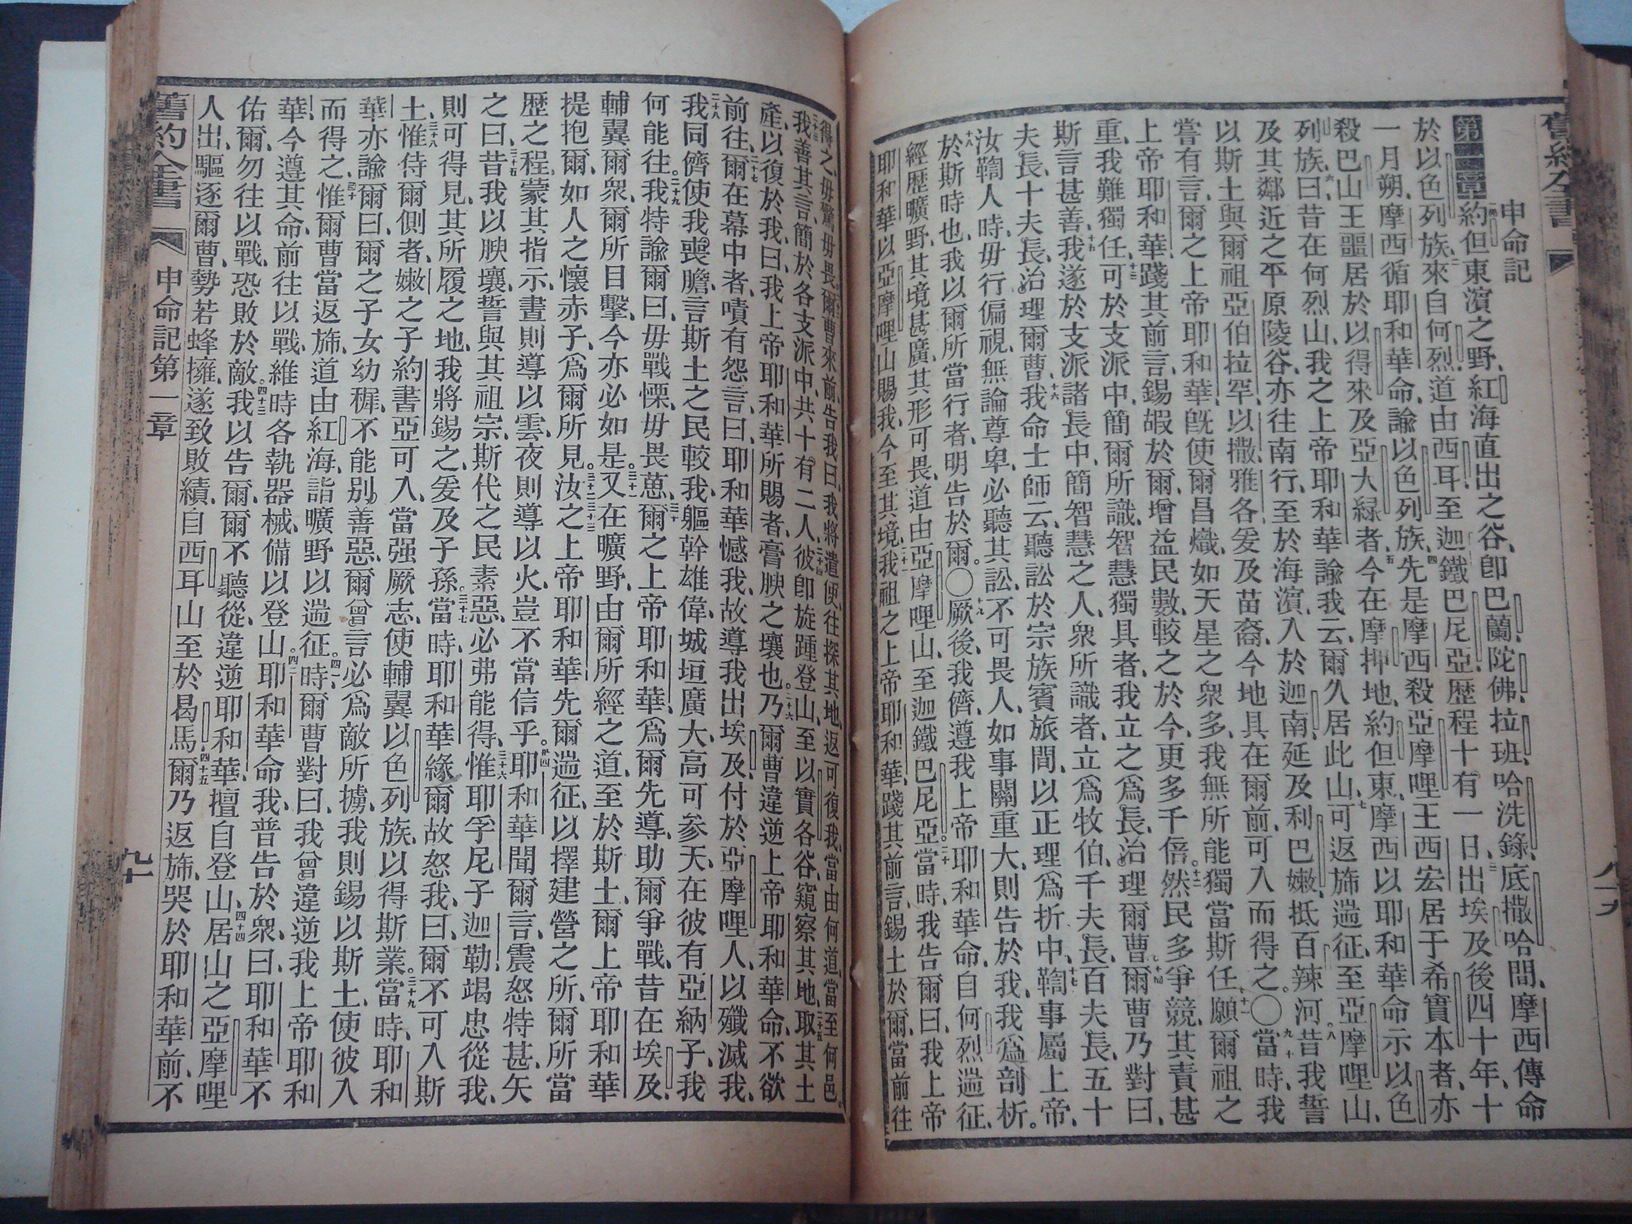 申命記
第一章約但東濱之野、紅海直出之谷、卽巴蘭陀佛、拉班哈洗錄、底撒哈間、摩西傳命
於以色列族、來自何烈、道由西耳、至迦鐵巴尼亞、歷程十有一日、出埃及後四十年、十
一月朔、摩西循耶和華命、諭以色列族、先是摩西殺亞摩哩王西宏、居于希實本者、亦
殺巴山王噩、居於以得來、及亞大綠者、今在摩押地、約但東、摩西以耶和華命、示以色
列族曰、昔在何烈山、我之上帝耶和華諭我云、爾久居此山、可返旆遄征、至亞摩哩山、
及其鄰近之平原陵谷、亦往南行、至於海濱、入於迦南、延及利巴嫩、抵百辣河、昔我誓
以斯土與爾祖亞伯拉罕、以撒、雅各、爰及苗裔、今地具在爾前、可入而得之。〇當時、我
嘗有言、爾之上帝耶和華、旣使爾昌熾、如天星之衆多、我無所能獨當斯任、願爾祖之
上帝耶和華、踐其前言、錫嘏於爾、增益民數、較之於今、更多千倍。然民多爭競、其責甚
重、我難獨任、可於支派中、簡爾所識、智慧獨具者、我立之爲長、治理爾曹、爾曹乃對曰、
斯言甚善、我遂於支派諸長中、簡智慧之人、衆所識者、立爲牧伯、千夫長、百夫長、五十
夫長、十夫長、治理爾曹、我命士師云、聽訟於宗族賓旅間、以正理爲折中、鞫事屬上帝、
汝鞫人時、毋行偏視、無論尊卑、必聽其訟、不可畏人、如事關重大、則告於我、我爲剖析。
於斯時也、我以爾所當行者、明告於爾。〇厥後、我儕遵我上帝耶和華命、自何烈遄征、
經歷曠野、其境甚廣、其形可畏、道由亞摩哩山、至迦鐵巴尼亞。當時、我告爾曰、我上帝
耶和華以亞摩哩山賜我、今至其境、我祖之上帝耶和華、踐其前言、錫土於爾、當前往
得之、毋驚毋畏、爾曹來前告我曰、我將遣使、往探其地、返可復我、當由何道、當至何邑、
我善其言、簡於各支派中、共十有二人、彼卽旋踵登山、至以實各谷、窺察其地、取其土
產、以復於我曰、我上帝耶和華所賜者、膏腴之壤也。乃爾曹違逆上帝耶和華命、不欲
前往、爾在幕中者、嘖有怨言、曰、耶和華憾我、故導我出埃及、付於亞摩哩人、以殲滅我、
我同儕使我喪膽、言斯土之民較我、軀幹雄偉、城垣廣大、高可參天、在彼有亞納子、我
何能往、我特諭爾曰、毋戰慄、毋畏葸、爾之上帝耶和華、爲爾先導、助爾爭戰、昔在埃及、
輔翼爾衆、爾所目擊、今亦必如是。又在曠野、由爾所經之道、至於斯土、爾上帝耶和華
提抱爾、如人之懷赤子、爲爾所見。汝之上帝耶和華先爾遄征、以擇建營之所、爾所當
歷之程、蒙其指示、晝則導以雲、夜則導以火、豈不當信乎。耶和華聞爾言、震怒特甚、矢
之曰、昔我以腴壤、誓與其祖宗、斯代之民素惡、必弗能得、惟耶孚尼子迦勒、竭忠從我、
則可得見、其所履之地、我將錫之、爰及子孫。當時、耶和華緣爾故怒我、曰、爾不可入斯
土、惟侍爾側者、嫩之子約書亞可入、當强厥志、使輔翼以色列族、以得斯業。當時、耶和
華亦諭爾曰、爾之子女幼穉、不能別善惡、爾曾言必爲敵所擄、我則錫以斯土、使彼入
而得之、惟爾曹當返旆、道由紅海、詣曠野以遄征。時爾曹對曰、我曾違逆我上帝耶和
華、今遵其命、前往以戰、維時各執器械、備以登山。耶和華命我、普告於衆曰、耶和華不
佑爾、勿往以戰、恐敗於敵。我以告爾、爾不聽從、違逆耶和華、擅自登山、居山之亞摩哩
人出、驅逐爾曹、勢若蜂擁、遂致敗績、自西耳山至於曷馬、爾乃返旆、哭於耶和華前、不
舊約全書 申命記第一章 九十